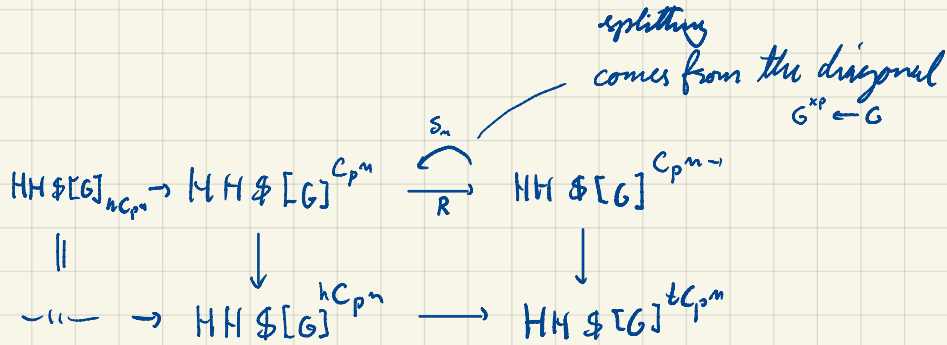 splitting
comes from the diagonal
G^{×p} ← G
S_n
HH $[G]_{hC_{p^n}} → HH $[G]^{C_{p^n}} → HH $[G]^{C_{p^{n-1}}}
R
||
—〃— → HH $[G]^{hC_{p^n}} → HH $[G]^{tC_{p^n}}